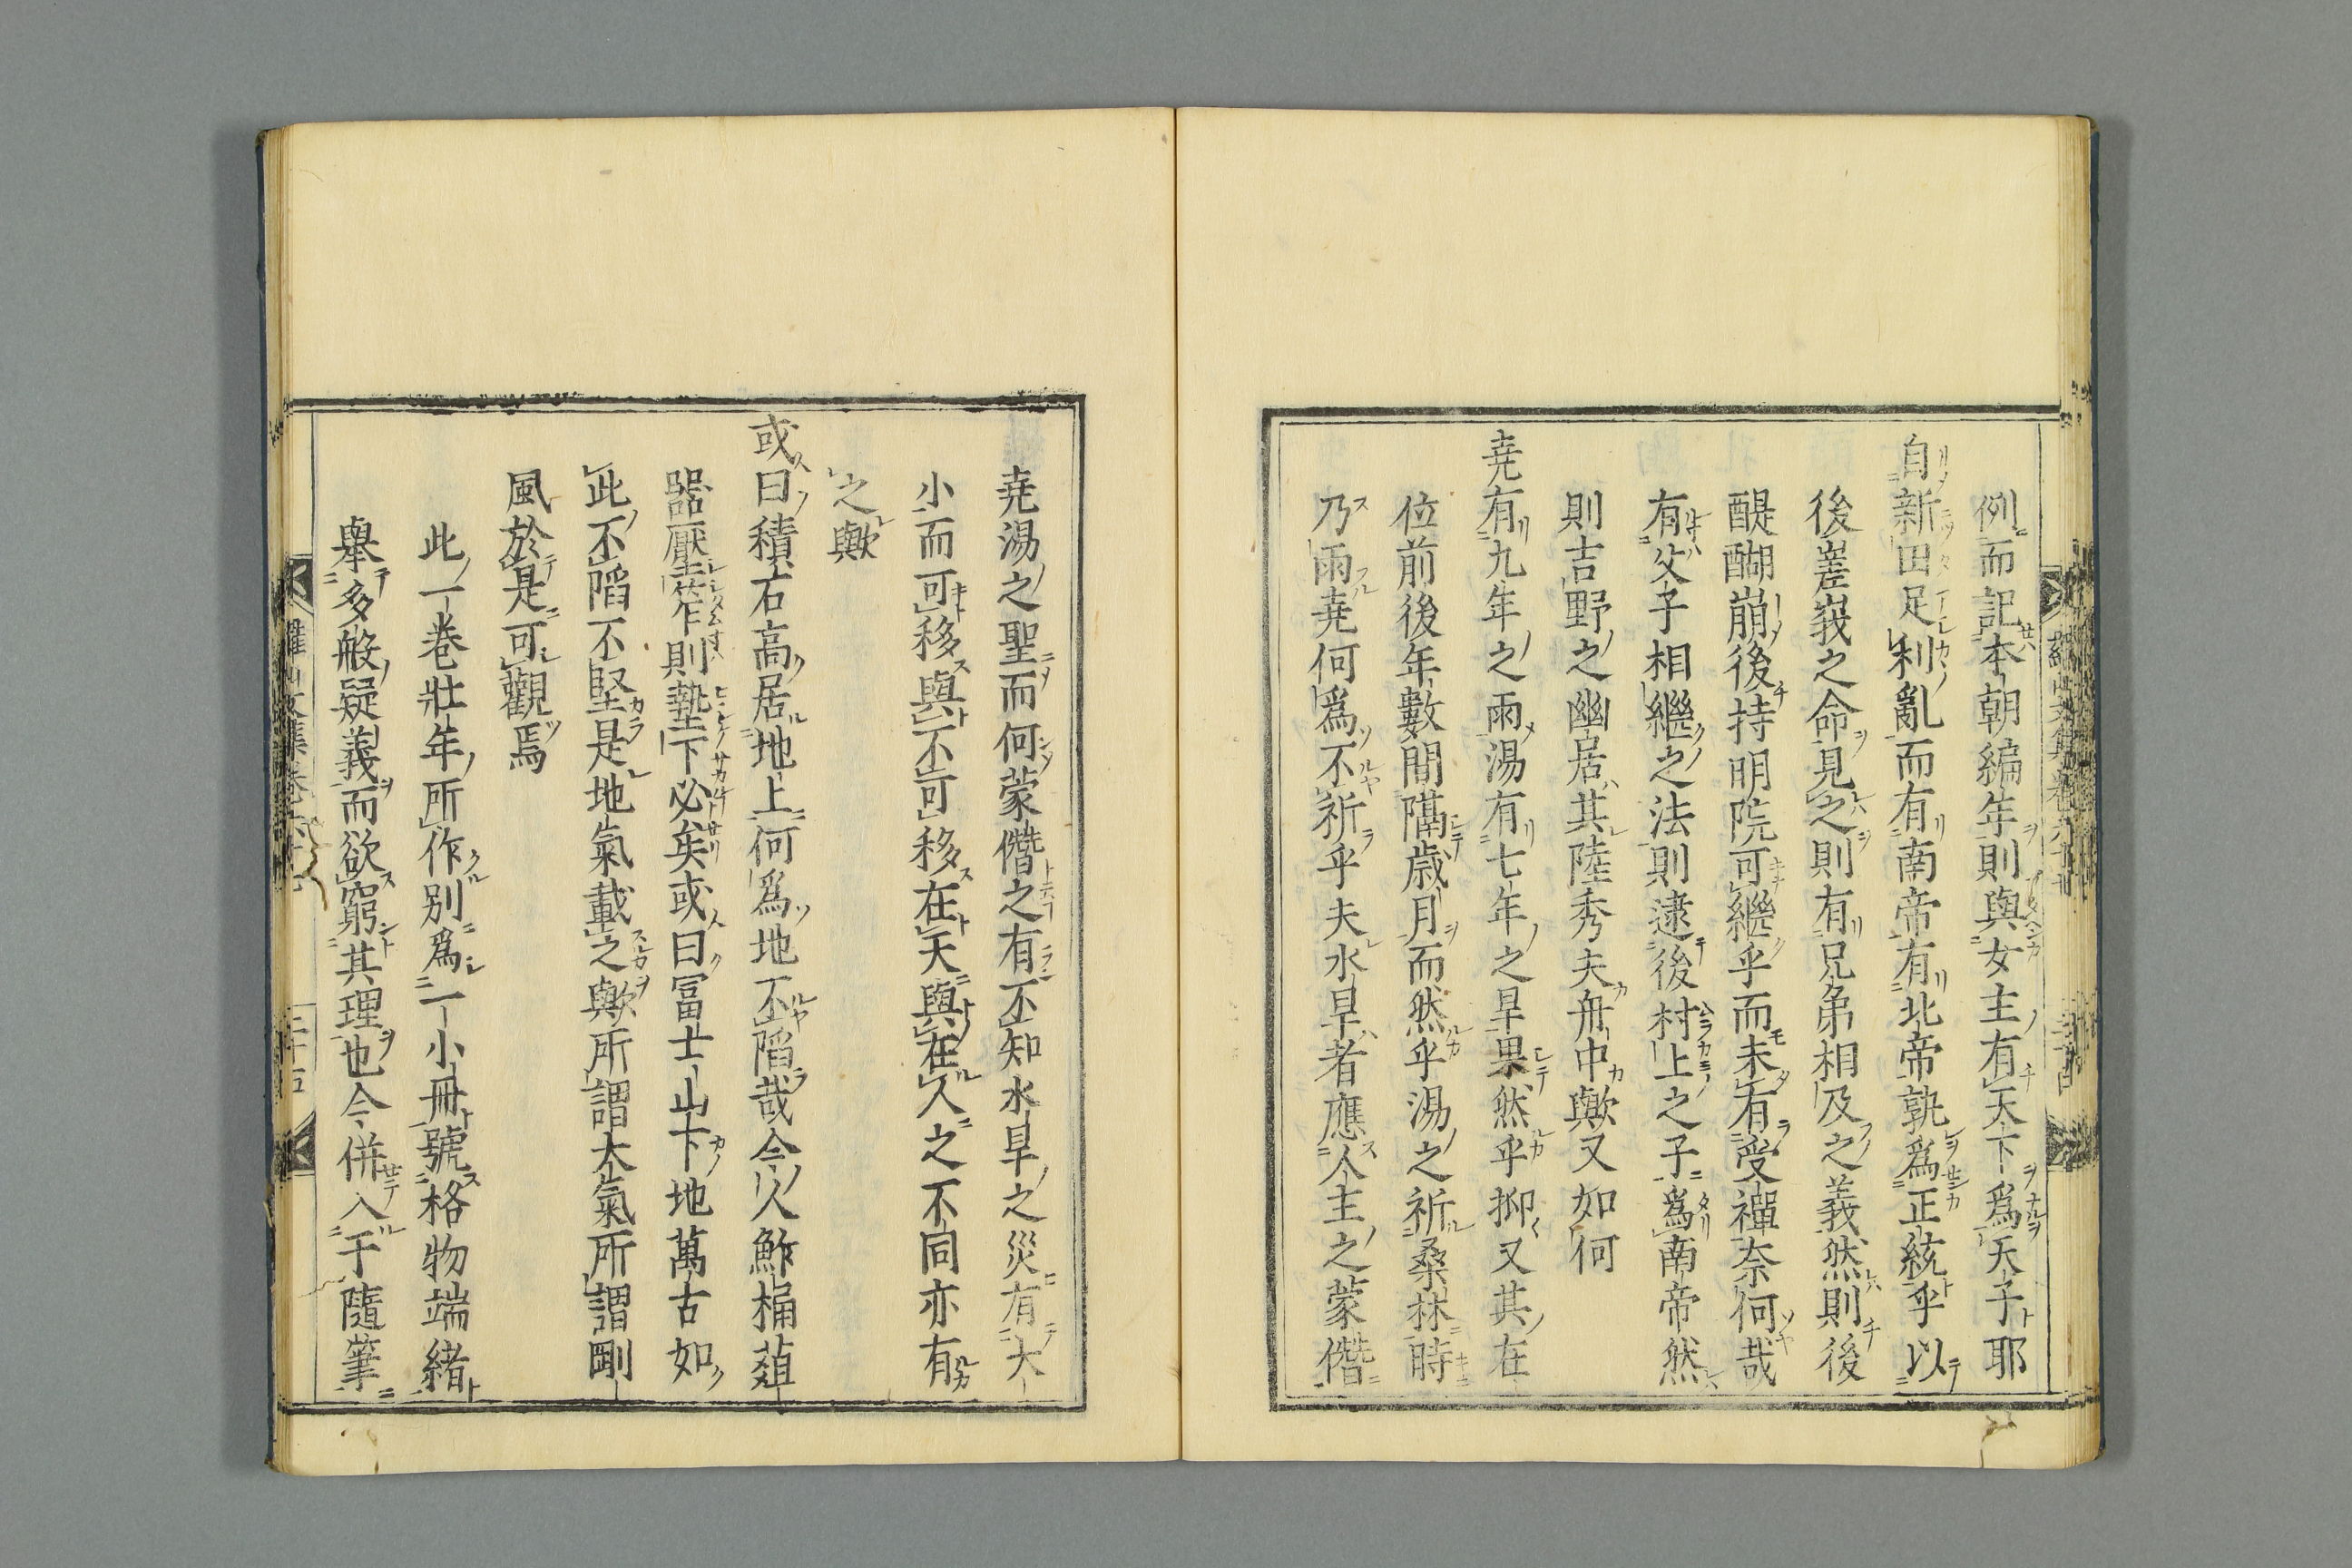 例而記本朝編年則與女主有天下爲天子耶
自新田足利亂而有南帝有北帝孰爲正統乎以
後嵯峩之命見之則有兄弟相及之義然則後
醍醐崩後持明院可繼乎而未有受禪奈何哉
有父子相繼之法則逮後村上之子爲南帝然
則吉野之幽居其陸秀夫舟中歟又如何
尭有九年之雨湯有七年之旱果然乎抑又其在
位前後年數間隔歳月而然乎湯之祈桑林時
乃雨尭何爲不祈乎夫水旱者應人主之蒙僭
尭湯之聖而何蒙僭之有不知水旱之災有大
小而可移與不可移在天與在人之不同亦有
之歟
或曰積石高居地上何爲地不陷哉今以鮓桶葅
器壓笮則墊下必矣或曰冨士山下地萬古如
此不陷不堅是地氣載之歟所謂大氣所謂剛
風於是可觀焉
此一巻壯年所作別爲一小冊號格物端緒
舉多般疑義而欲窮其理也今併入于隨筆